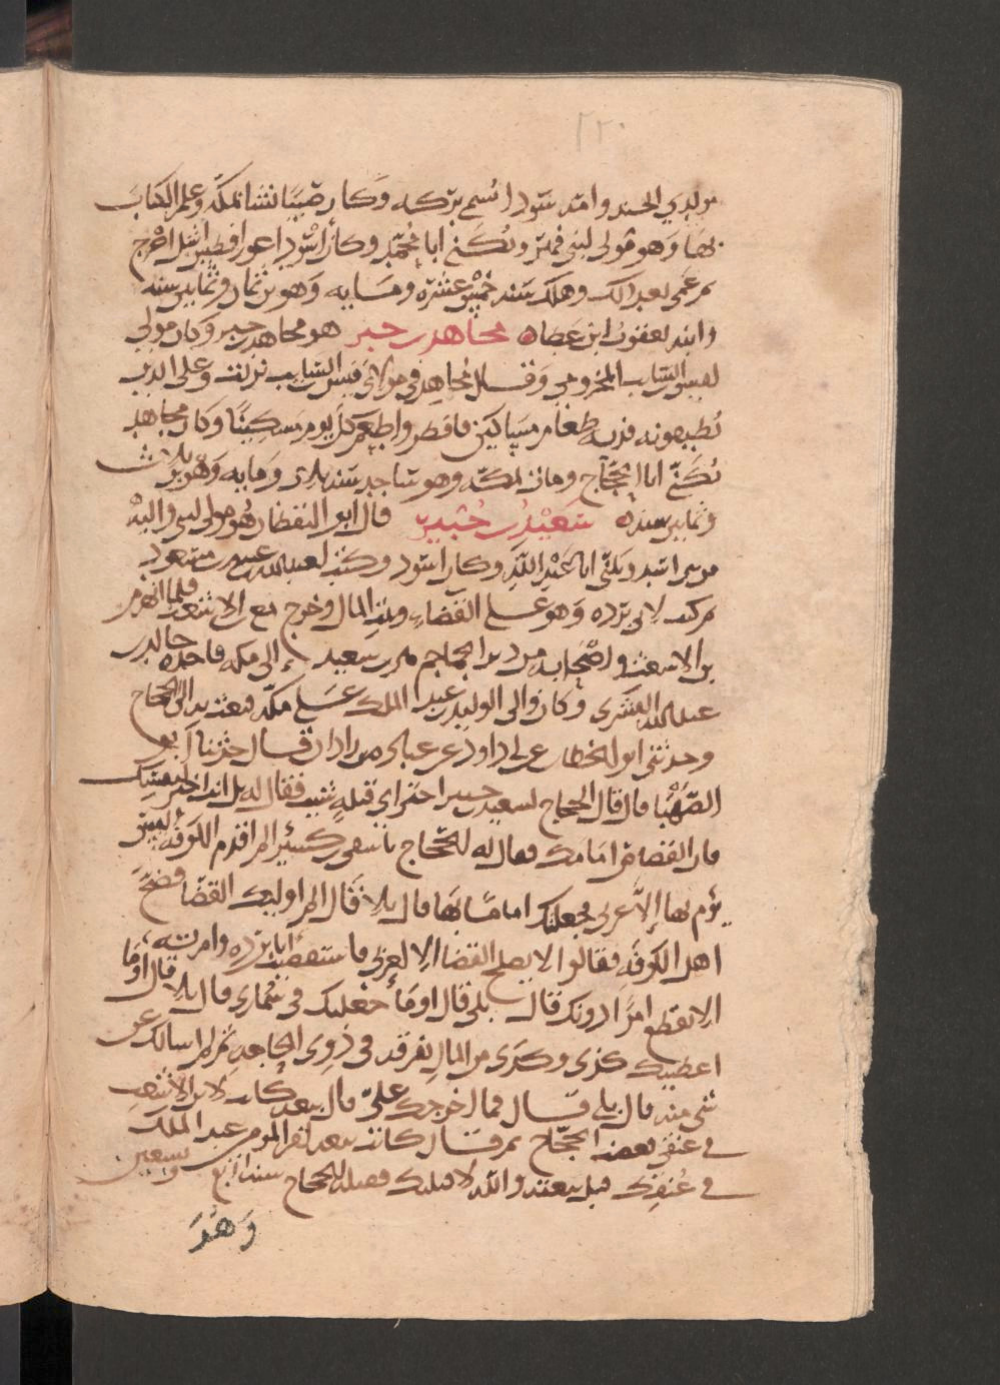 ٢٢٠
مولدي الجند وامه سودا اسمع بركه وكان صبيا نشا بمكة وعلم الكتاب
بها وهو مولى لبني فهر ويكنى ابا محمد وكان اسود اعور افطس اشل اعرج
ثم عمى بعد ذلك وهلك سنة خمس عشرة وماية وهو بن ثمان وثمانين سنه
وابنه يعقوب ابن عطاء مجاهد بن جبر هو مجاهد بن جبر وكان مولى
لقيس السايب المخزومي وقال مجاهد في مولاى قيس السايب نزلت وعلى الذين
يطيقونه فدية طعام مساكين فافطر واطعم كل يوم مسكينا وكان مجاهد
يكنى ابا الحجاج ومات بمكة وهو ساجد سنة ثلاث وماية وهو بن ثلاث
وثمانين سنه سعيد بن جبير قال ابو اليقظان هو مولى لبني والبة
من بني اسد ويكنى ابا عبد الله وكان اسود وكتب لعبد الله عتبة بن مسعود
ثم كتب لابي بردة وهو على القضاء وبيت المال وخرج مع الاشعث فلما انهزم
بن الاشعث واصحابه من دير الجماجم هرب سعيد الى مكة فاخذه خالد بن
عبد الله القسري وكان والى الوليد بن عبد الملك على مكة فبعث به الى الحجاج
وحدثني ابو الخطاب عن ابي داود عن عمارة من زادان قال حدثنا ابو
الصهبا قال قال الحجاج لسعيد جبير اختر اي قتلة شيت فقال له بل انت اختر لنفسك
فان القصاص امامك فقال له الحجاج يا شقي بن كسير الم اقدم الكوفة وليس
يؤم بها الا عربي فجعلتك اماما بها قال بلا قال الم اوليك القضا فضج
اهل الكوفة فقالوا لا يصلح القضا الا لعربي فاستقضيت ابا بردة وامرته
الا يقطع امرا دونك قال بلى قال اوما جعلتك في سماري قال بلا قال اوما
اعطيتك كذى وكذى من المال تفرقه في ذوي الحاجة ثم لم اسالك عن
شي منه قال بلى قال فما اخرجك على قال بيعه كانت لابن الاشعث
في عنقي بغضب الحجاج ثم قال كانت بيعة امير المومنين عبد الملك
في عنقك قبل بيعته والله لاقتلنك فقتله الحجاج سنة اربع وتسعين
وهو